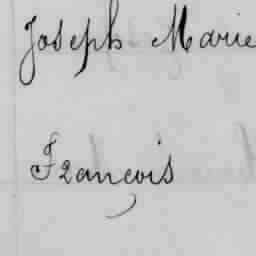 Joseph Marie
François